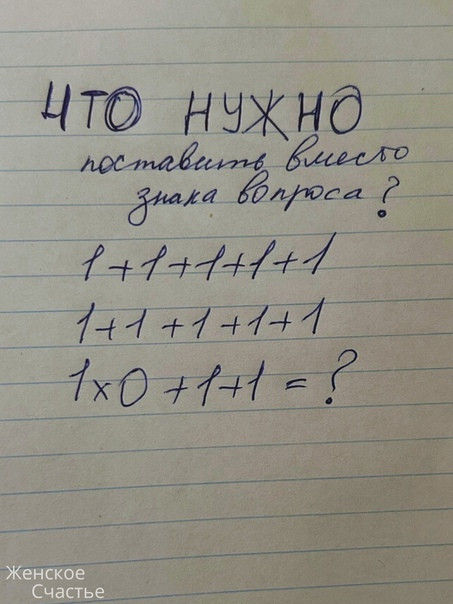 ЧТО НУЖНО
поставить вместо
знака вопроса?
1+1+1+1+1
1+1+1+1+1
1x0+1+1=?
Женское
Счастье